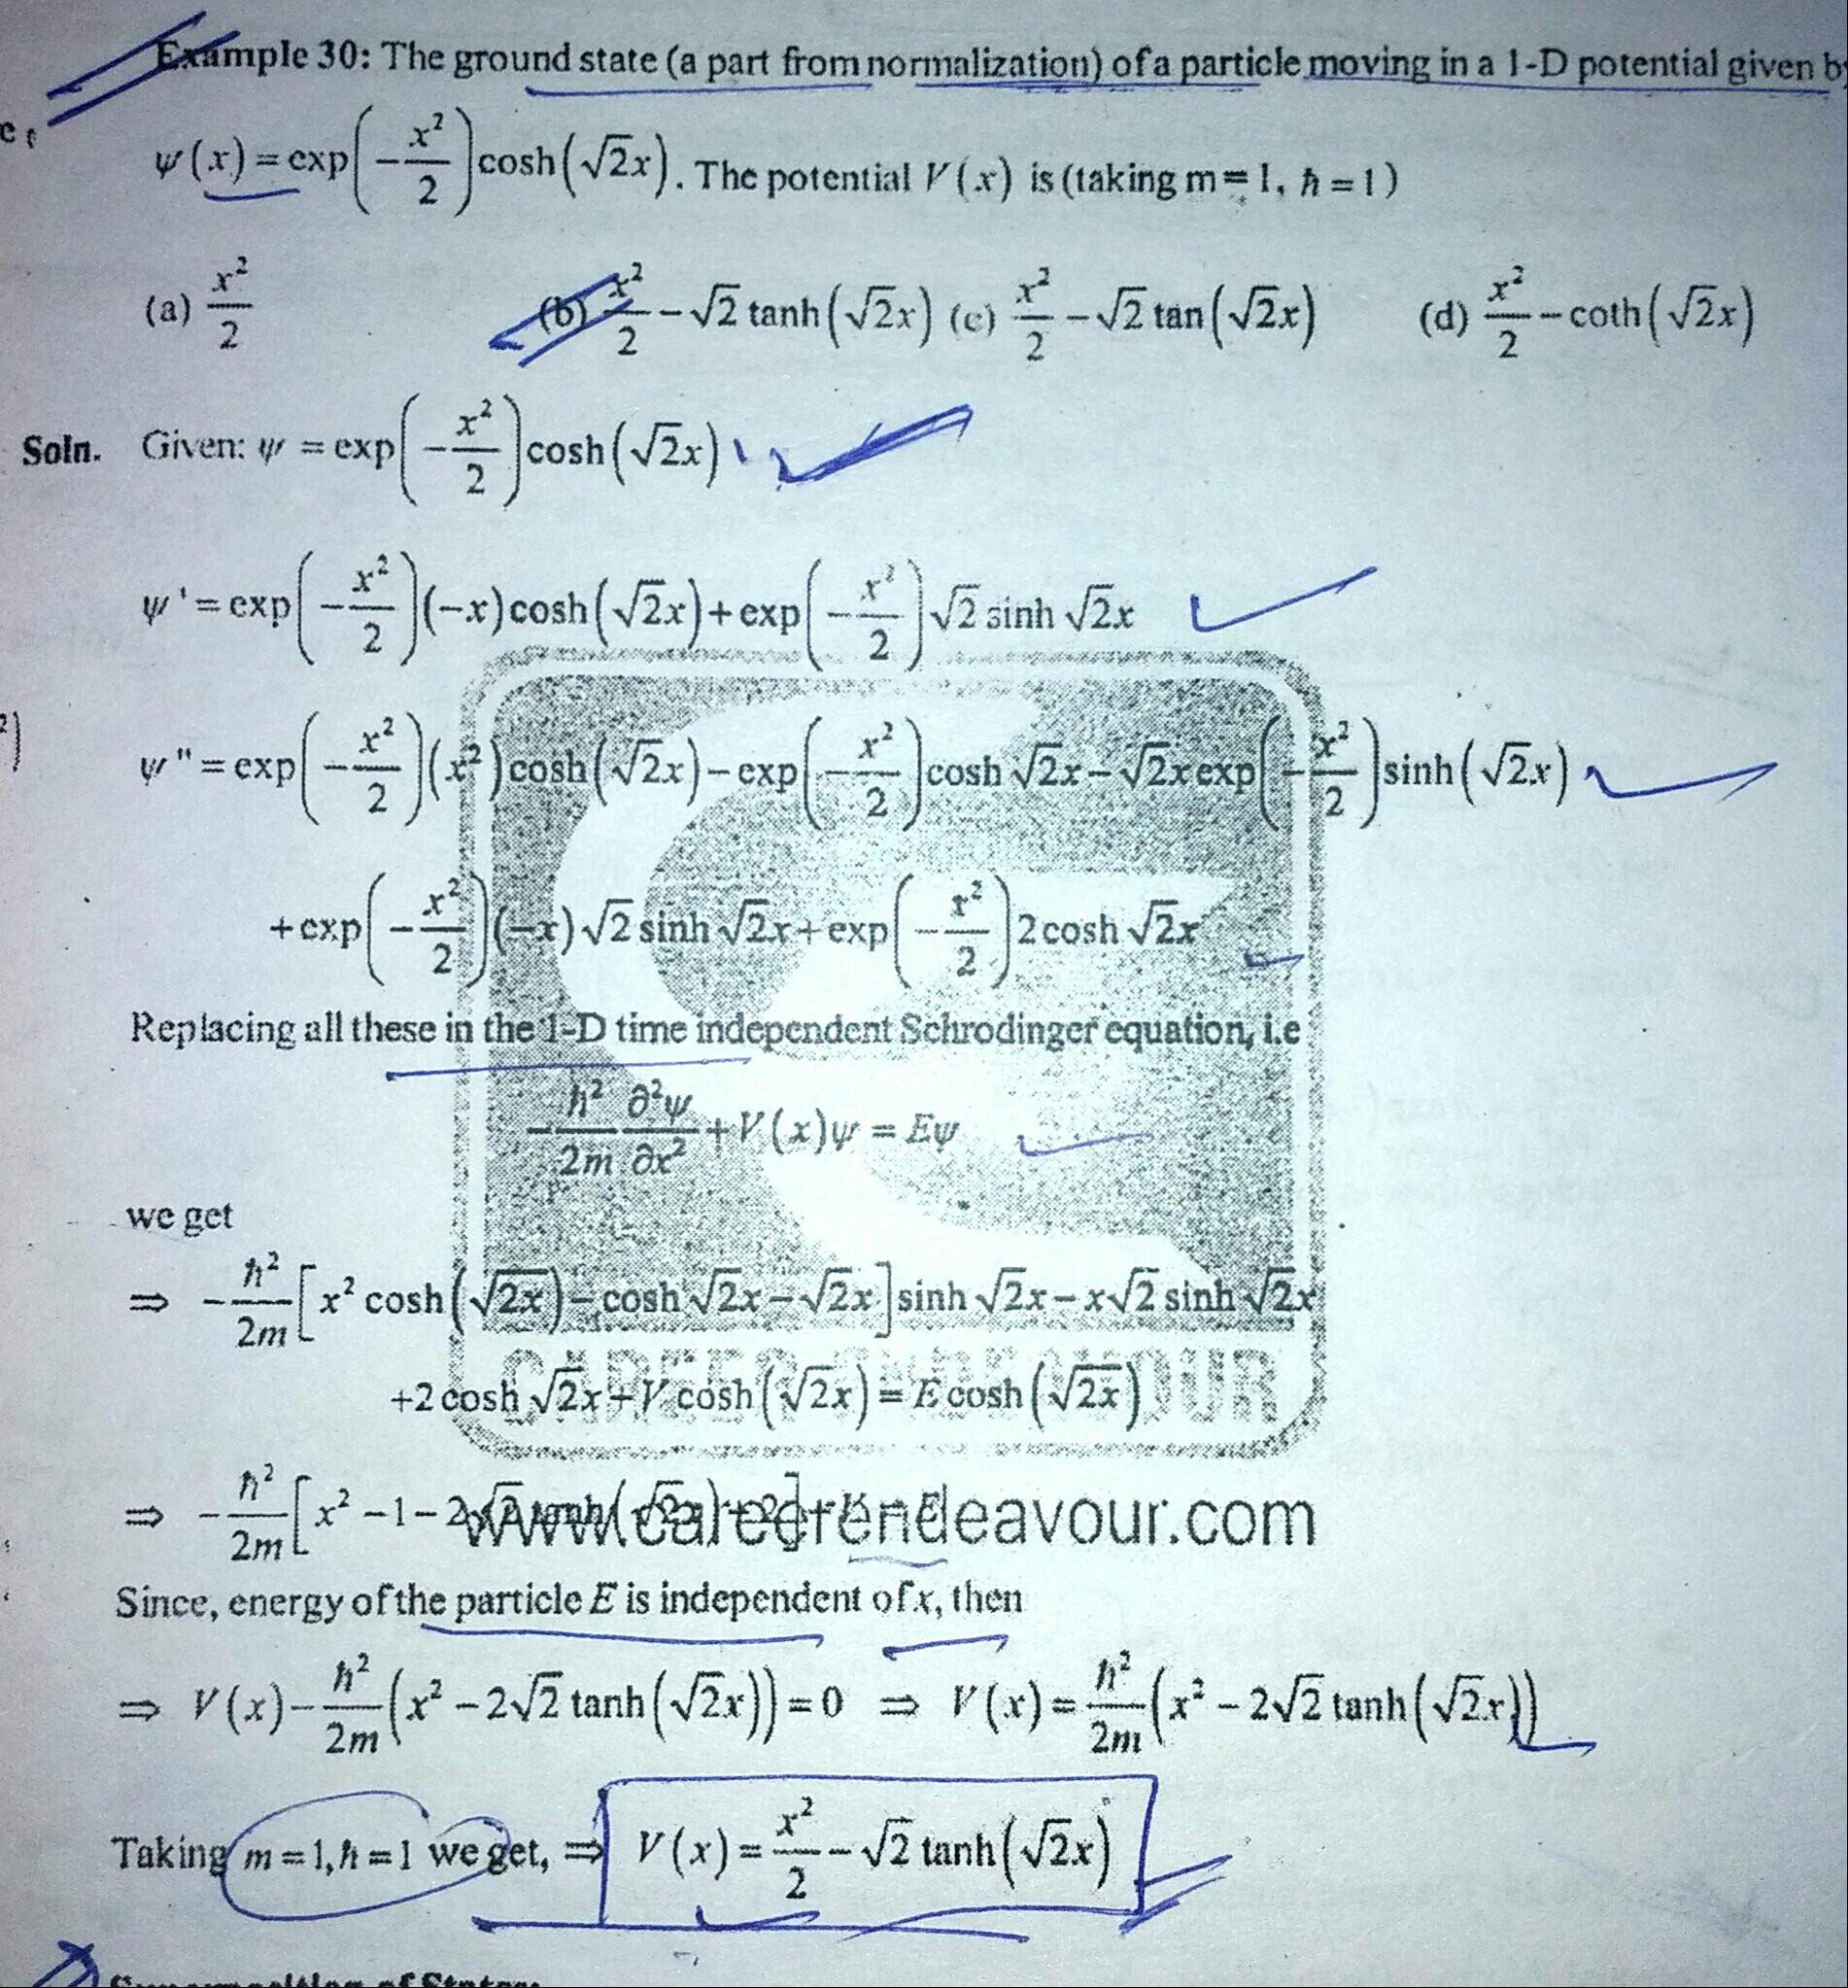 Example 30: The ground state (a part from normalization) of a particle moving in a 1-D potential given by
ψ(x) = exp(-x²/2) cosh(√2x). The potential V(x) is (taking m = 1, ħ = 1)
(a) x²/2 (b) x²/2 - √2 tanh(√2x) (c) x²/2 - √2 tan(√2x) (d) x²/2 - coth(√2x)
Soln. Given: ψ = exp(-x²/2) cosh(√2x)
ψ' = exp(-x²/2)(-x) cosh(√2x) + exp(-x²/2) √2 sinh √2x
ψ" = exp(-x²/2)(x²) cosh(√2x) - exp(-x²/2) cosh √2x - √2x exp(-x²/2) sinh(√2x)
+ exp(-x²/2)(-x) √2 sinh √2x + exp(-x²/2) 2 cosh √2x
Replacing all these in the 1-D time independent Schrodinger equation, i.e
-ħ²/2m ∂²ψ/∂x² + V(x)ψ = Eψ
we get
⇒ -ħ²/2m [x² cosh(√2x) - cosh √2x - √2x] sinh √2x - x√2 sinh √2x
+2 cosh √2x + V cosh(√2x) = E cosh(√2x)
CAREER ENDEAVOUR
⇒ -ħ²/2m [x² - 1 - 2√2 tanh(√2x) + 2] + V = E
www.careerendeavour.com
Since, energy of the particle E is independent of x, then
⇒ V(x) - ħ²/2m (x² - 2√2 tanh(√2x)) = 0 ⇒ V(x) = ħ²/2m (x² - 2√2 tanh(√2x))
Taking m = 1, ħ = 1 we get, ⇒ V(x) = x²/2 - √2 tanh(√2x)
Superposition of States: